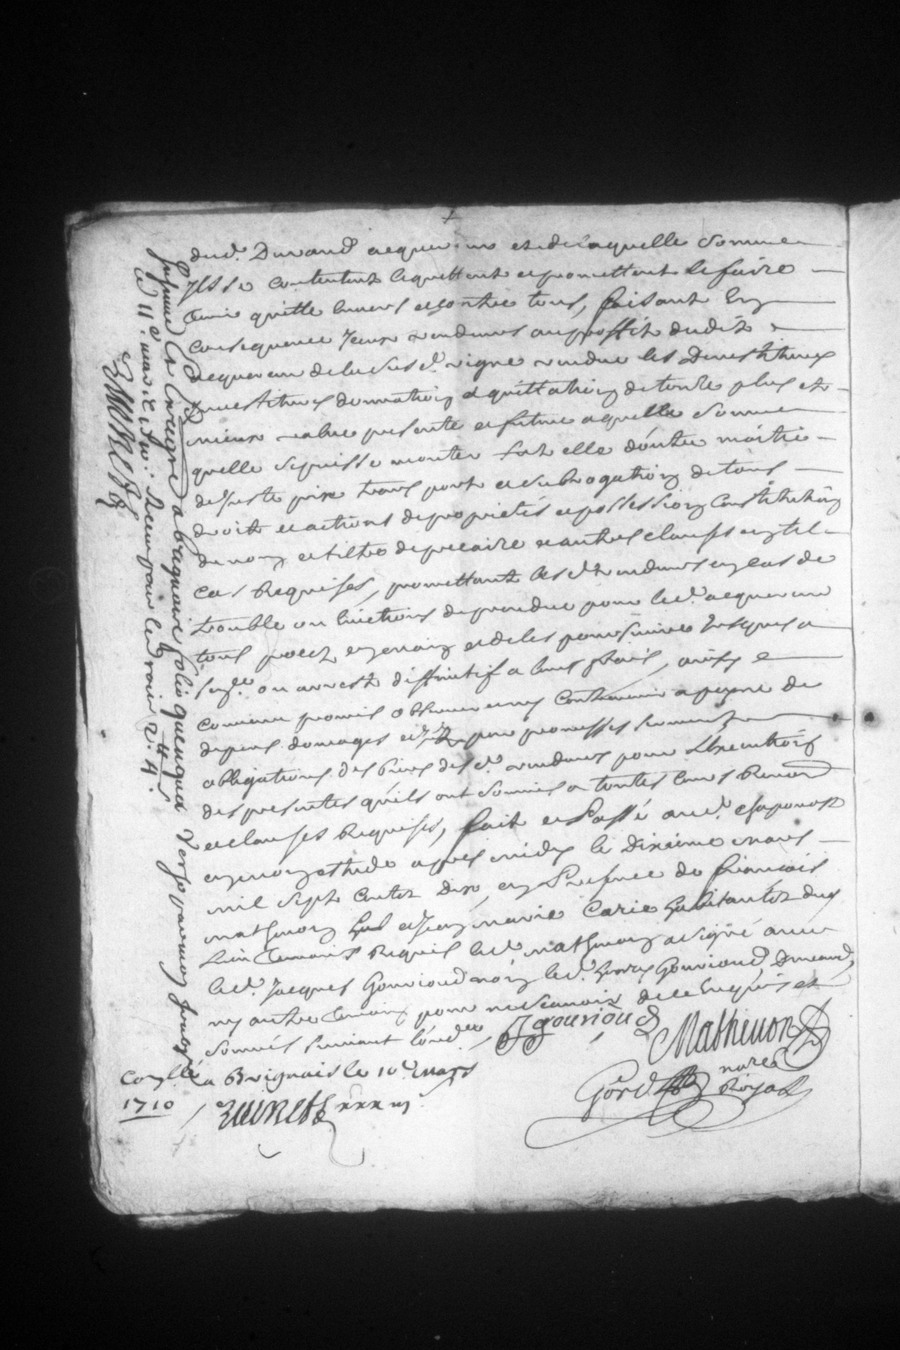 dud. Durand acquereur et de laquelle somme
Ils se contentent lequittent et promettent le faire
tenir quitte envers et contre tous, faisant en
consequence Iceux vendeurs au proffit dudit
acquereur de la susd. vigne vendue les Devestitures
Investitures donnation & quittation de toute plus et
mieux value presente et future a quelle somme
quelle se puisse monter soit elle d'outre moitié
de juste prix transport et subrogation de tous
droits et actions de proprietés et possession Constitution
de nom et tiltre de precaire et autres clauses en tel
cas Requises, promettant lesd. vendeurs en cas de
trouble ou evictions de prendre pour led. acquereur
tous procez en main et de les poursuivre Jusques a
sur ou arrest diffinitif a leurs frais, ainsy
convenu promis observer sans contrevenir a peyne de
depens domages par promesses serment
obligations des biens desd. vendeurs pour L'execution
des presentes qu'ils ont soumis a toutes Cours Renon
et clauses Requises, fait et Passé aud. chaponost
en mon estude apres midy le dixieme mars
mil sept cents dix en Presence de françois
mathevon et marie Carie habitants dud.
Lieu temoins Requis led. mathevon a signé avec
led. Jacques Gouvioud non led. Gouvioud vendeur
ny autre temoin pour ne sçavoir de ce Enquis et
sommés suivant l'ord.ce
JGouvioud
Mathevon
Con.llé a Brignais le 10e mars
1710
notre
Royal
et Enregré a brignais folio verso
11e mars 1710 Receu pour le droit